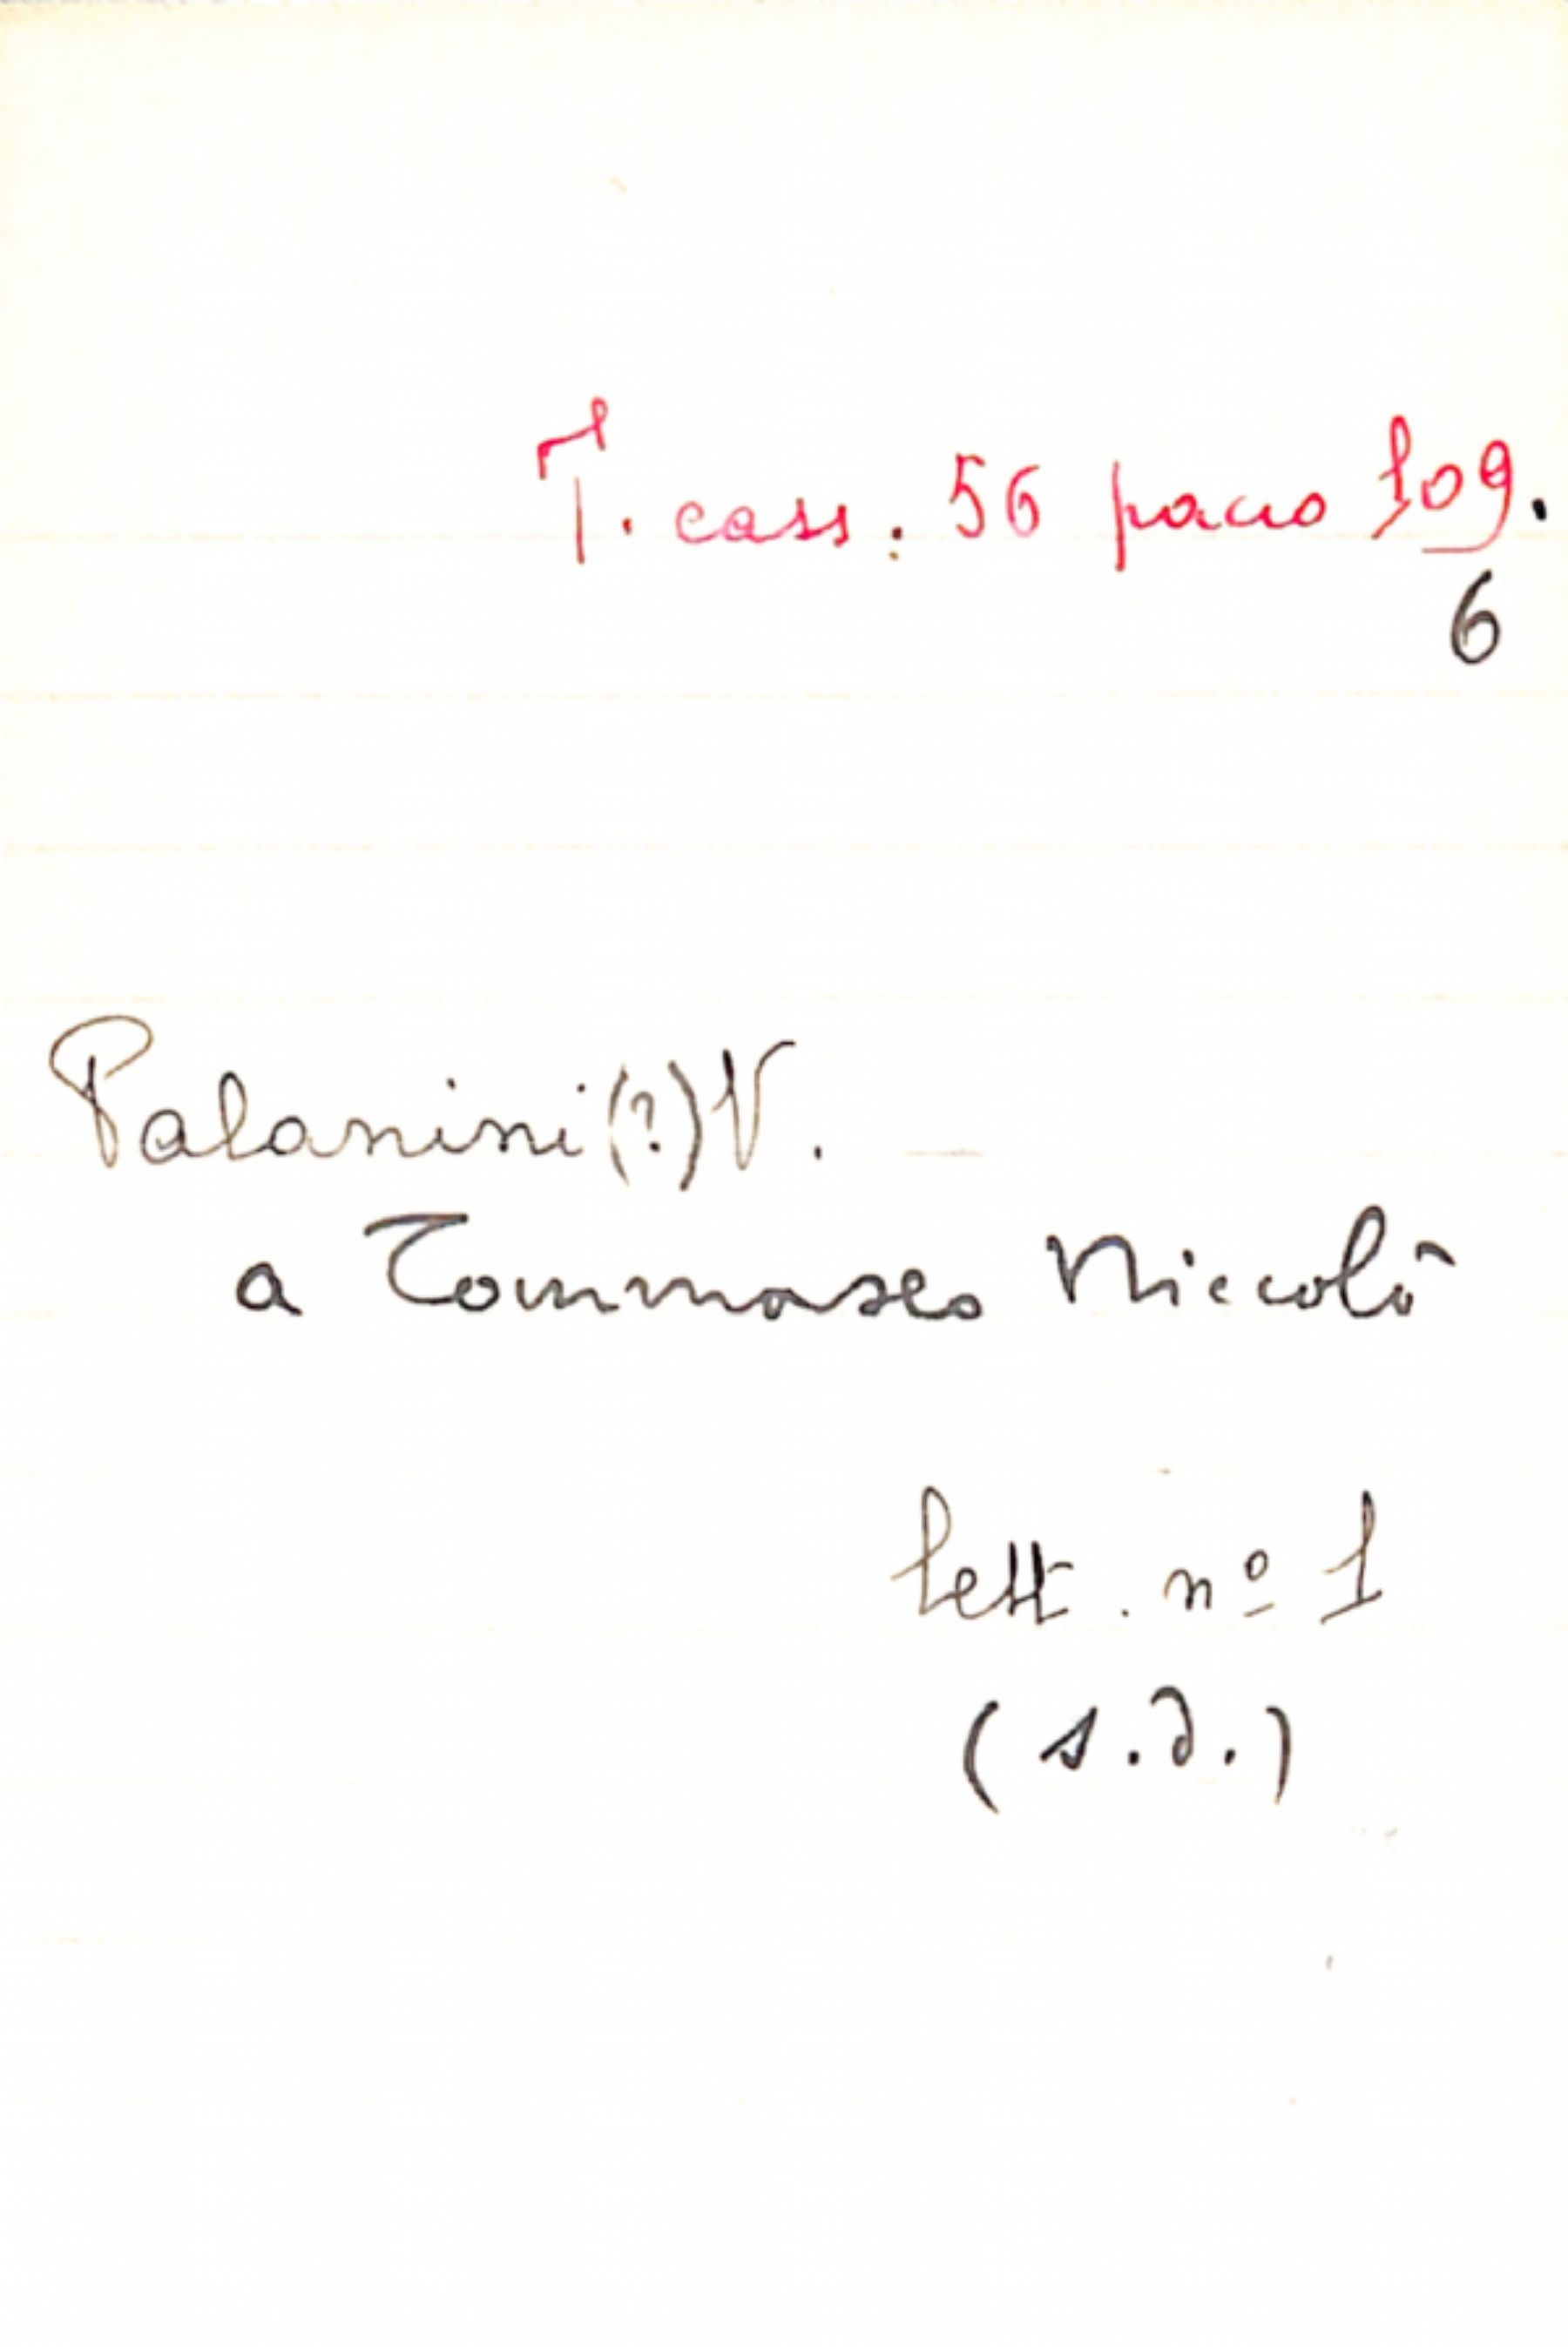 T. cass. 56 pacco 109.
6
Palanini (?) V.
a Tommaseo Niccolò
lett. nº 1
(s.d.)